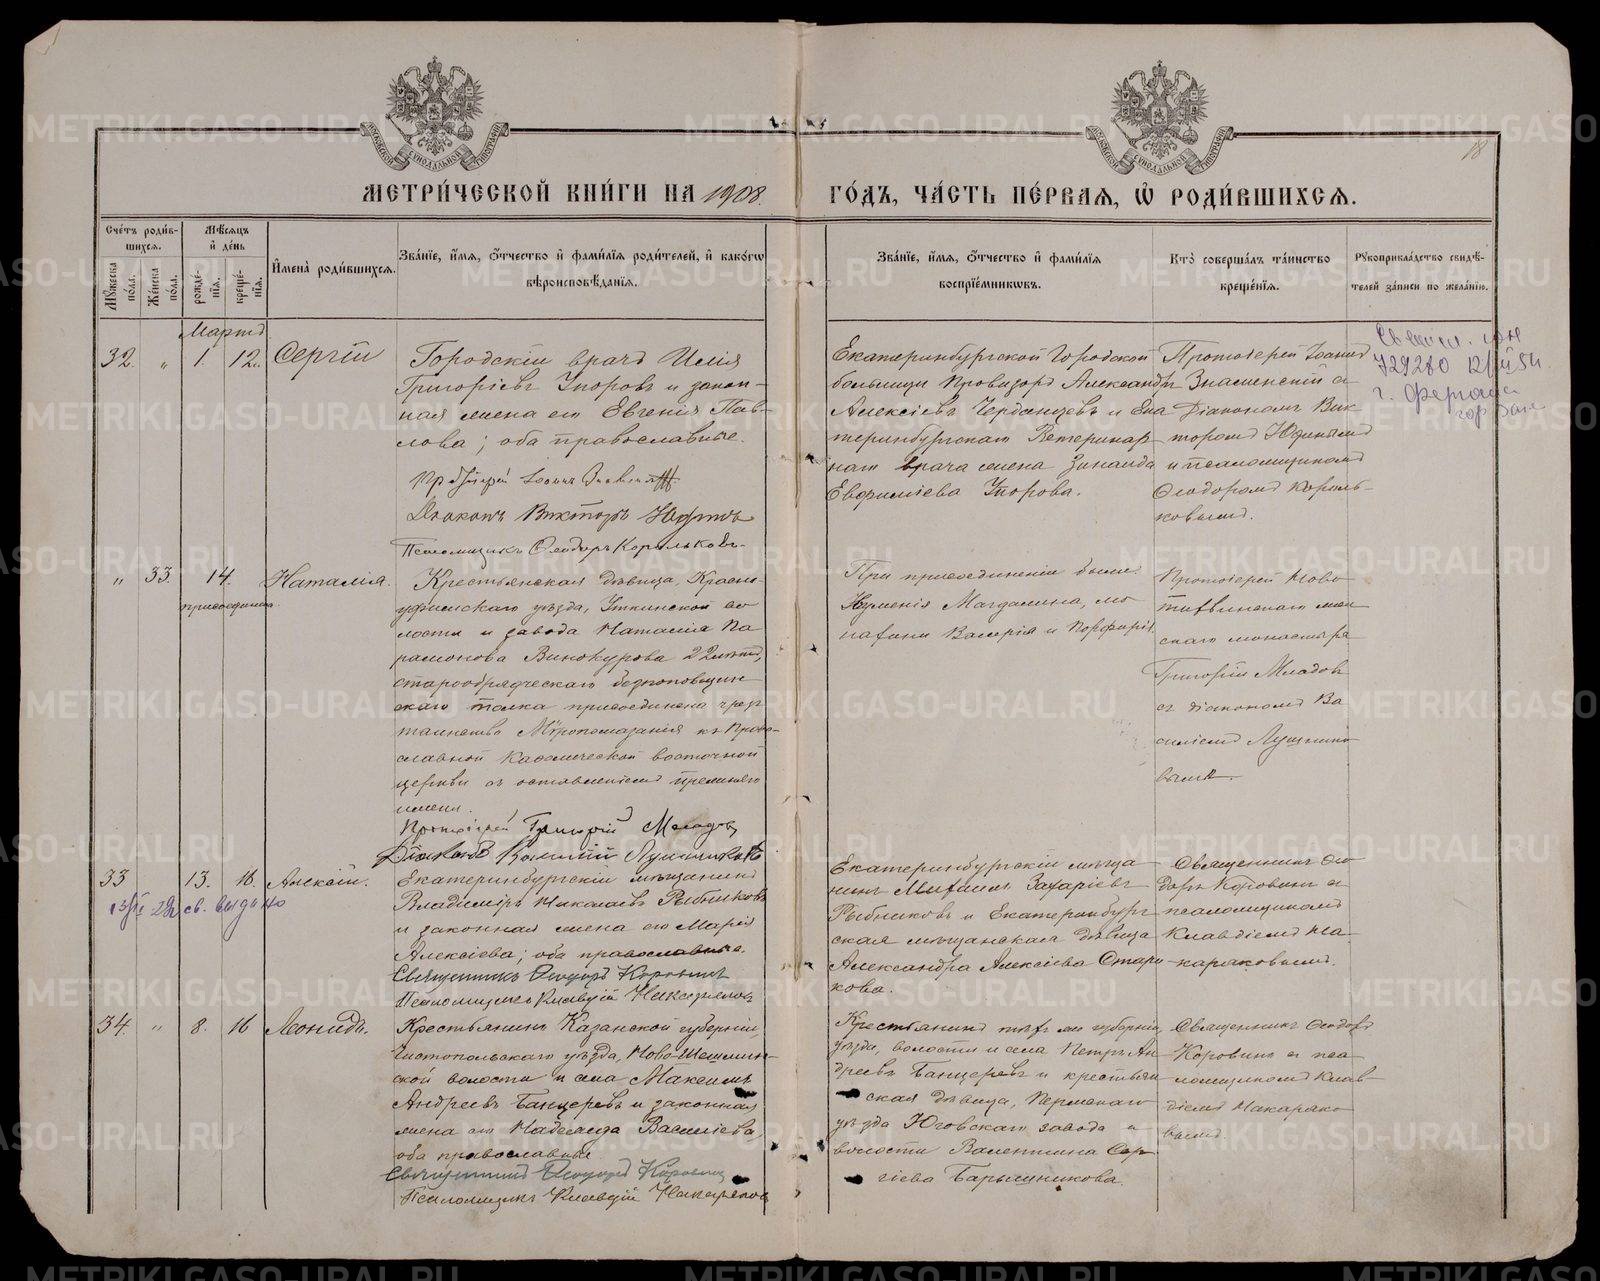 МОСКОВСКОЙ СѴНОДАЛЬНОЙ ТИПОГРАФІИ
МОСКОВСКОЙ СѴНОДАЛЬНОЙ ТИПОГРАФІИ
18
МЕТРИ́ЧЕСКОЙ КНИ́ГИ НА 1908.
ГО́ДЪ, ЧА́СТЬ ПЕ́РВАЯ, Ѽ РОДИ́ВШИХСЯ.
Сче́тъ роди́в-
шихся.
Мꙋ́жеска по́ла.
Же́нска по́ла.
Мѣ́сяцъ
и҆ де́нь
рожде́-
нїя.
креще́-
нїя.
И҆мена̀ роди́вшихся.
Зва́нїе, и҆́мя, ѻ҆́тчество и҆ фами́лїя роди́телей, и҆ како́гѡ
вѣроисповѣ́данїя.
Зва́нїе, и҆́мя, ѻ҆́тчество и҆ фами́лїя
воспрїе́мникѡвъ.
Кто̀ соверша́лъ та́инство
креще́нїя.
Рꙋкоприкла́дство свидѣ́-
телей за́писи по жела́нїю.
Мартъ
32. „ 1. 12. Сергій
Городскій врачъ Илія
Григоріевъ Упоровъ и закон-
ная жена его Евгенія Пав-
лова; оба православные.
Протоіерей Іоаннъ Знаменскій
Діаконъ Викторъ Юдинъ
Псаломщикъ Ѳеодоръ Корольковъ
Екатеринбургской городской
больницы Провизоръ Александръ
Алексіевъ Черданцевъ и Ека
теринбургскаго Ветеринар
наго врача жена Зинаида
Евфиміева Упорова.
Протоіерей Іоаннъ
Знаменскій съ
Діакономъ Вик-
торомъ Юдинымъ
и псаломщикомъ
Ѳеодоромъ Король-
ковымъ.
729280
„ 33. 14. Наталія.
присоединена.
Крестьянская дѣвица, Красно-
уфимскаго уѣзда, Уткинской во
лости и завода Наталія Па
рамонова Винокурова 22 лѣтъ,
старообрядческаго безпоповщин
скаго толка присоединена чрез
таинство Мѵропомазанія къ Право-
славной Каѳолической восточной
церкви съ оставленіемъ прежняго
имени.
Протоіерей Григорій Младовъ
Діаконъ Василій Лушниковъ
При присоединеніи были:
Игуменія Магдалина, мо
нахини Валерія и Порфирія.
Протоіерей Ново
тихвинскаго жен
скаго монастыря
Григорій Младовъ
съ діакономъ Ва
силіемъ Лушнико
вымъ.
33 13. 16. Алексій.
св. выдано
Екатеринбургскій мѣщанинъ
Владиміръ Николаевъ Рыбниковъ
и законная жена его Марія
Алексіева; оба православные.
Священникъ Ѳеодоръ Коровинъ
Псаломщикъ Клавдій Накаряковъ
Екатеринбургскій мѣща
нинъ Михаилъ Захаріевъ
Рыбниковъ и Екатеринбург
ская мѣщанская дѣвица
Александра Алексіева Стари
кова.
Священникъ Ѳео
доръ Коровинъ съ
псаломщикомъ
Клавдіемъ На
каряковымъ.
34. „ 8. 16 Леонидъ.
Крестьянинъ Казанской губерніи,
Чистопольскаго уѣзда, Ново-Шешмин-
ской волости и села Максимъ
Андреевъ Банцеревъ и законная
жена его Надежда Васильева,
оба православные
Священникъ Ѳеодоръ Коровинъ
Псаломщикъ Клавдій Накаряковъ
Крестьянинъ тѣхъ же губерніи,
уѣзда, волости и села Петръ Ан
дреевъ Банцеревъ и крестьян
ская дѣвица, Пермскаго
уѣзда Юговскаго завода и
волости Валентина Сер
гіева Барышникова.
Священникъ Ѳеодоръ
Коровинъ съ пса
ломщикомъ Клав-
діемъ Накаряко
вымъ.